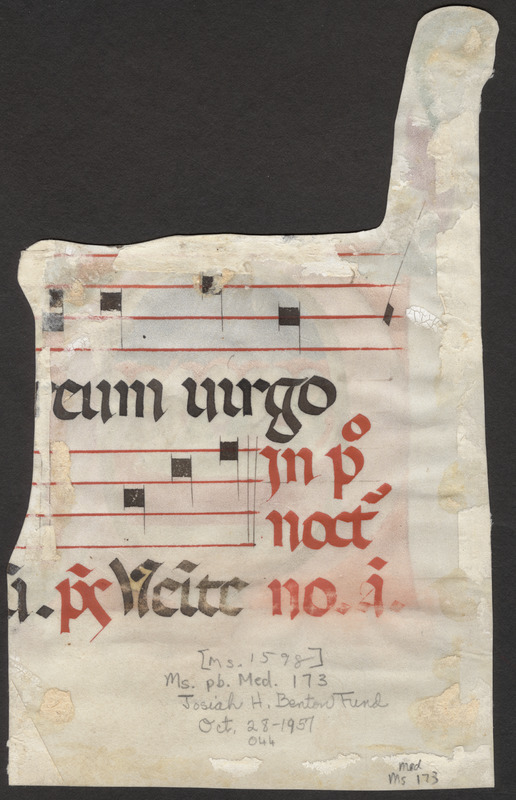 cum uirgo
jn pº
noct̉
ã. p̃s Ueñite no. ã.
[Ms. 1598]
Ms. pb. Med. 173
Josiah H. Benton Fund
Oct. 28-1957
044
med
Ms 173